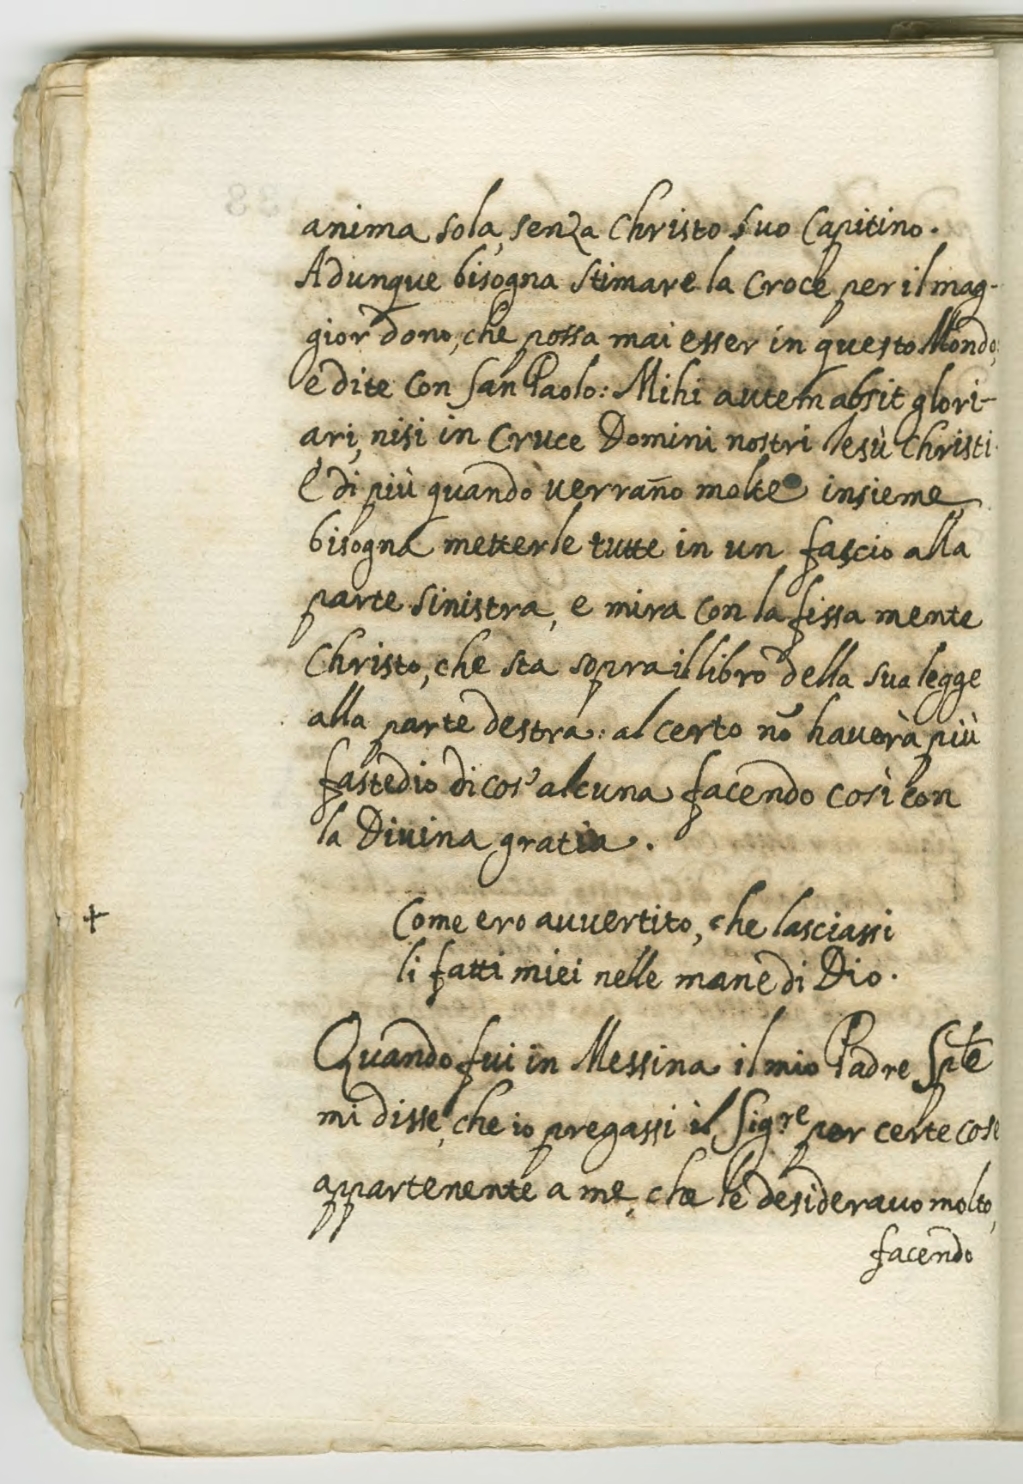 anima sola, senza Christo suo Capitino.
Adunque bisogna stimare la Croce per il mag-
gior dono, che possa mai esser in questo Mondo,
e dite con San Paolo: Mihi autem absit glori-
ari, nisi in Cruce Domini nostri Iesù Christi.
E di più quando verrãno molte insieme,
bisogna metterle tutte in un fascio alla
parte sinistra, e mira con la fissa mente
Christo, che sta sopra il libro della sua legge
alla parte destra: al certo nõ haverà più
fastedio di cos' alcuna facendo così con
la Divina gratia.
+
Come ero avvertito, che lasciassi
li fatti miei nelle mane di Dio.
Quando fui in Messina il mio Padre Sple
mi disse, che io pregassi il Sigre per certe cose
appartenente a me, che le desideravo molto,
facendo